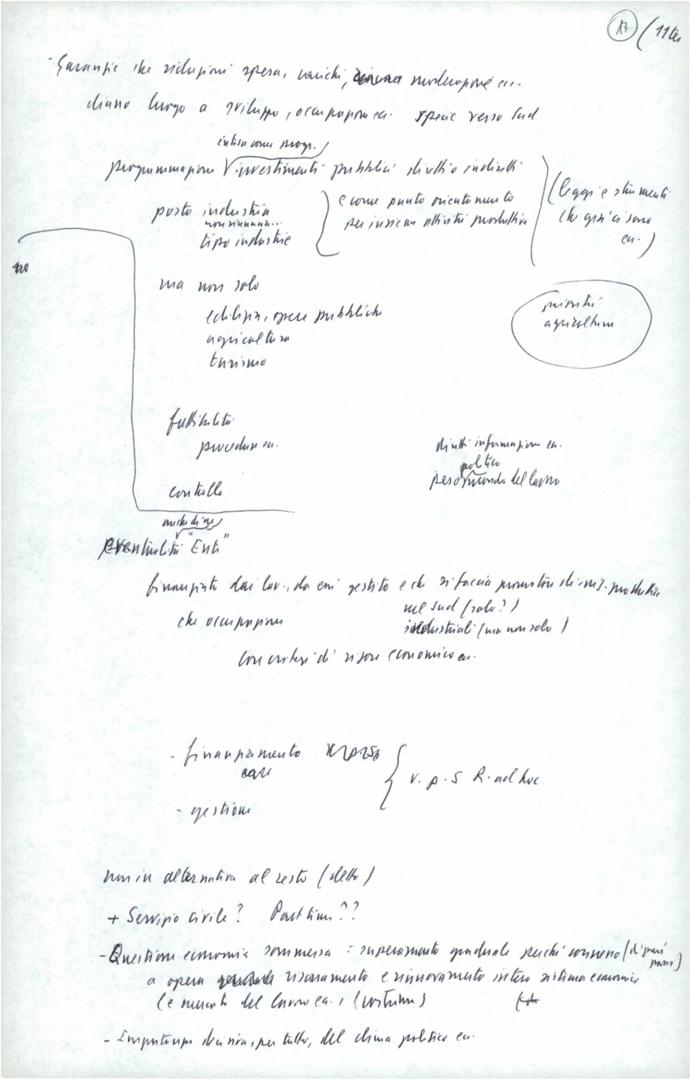 17 (11 ter
- Garanzie che riduzioni spesa, carichi, moderazione ecc.
diano luogo a sviluppo, occupazione ecc. specie verso Sud
intesa come progr.
programmazione investimenti pubblici diretti e indiretti
posto industria
tipo industrie
e come punto orientamento
per insieme attività produttive
(leggi e strumenti
che già ci sono
ecc.)
ma non solo
edilizia, opere pubbliche
agricoltura
turismo
priorità
agricoltura
fattibilità
procedure ecc.
controllo
diritti informazione ecc.
politico
peso domanda del lavoro
anche di
eventualità "Enti"
finanziato dai lav., da essi gestito e che si faccia promotore di inv. produttivi
nel Sud (solo?)
che occupazione
industriali (ma non solo)
con criteri di rigore economico ecc.
- finanziamento
case
- gestione
v. p. 5 R. ad hoc
non in alternativa al resto (detto)
+ Servizio civile? Part time??
- Questione economia sommersa: superamento graduale perché conviene (di pari passo)
a opera risanamento e rinnovamento intero sistema economico
(e mercato del lavoro ecc.; (costume)
- Importanza decisiva, per tutto, del clima politico ecc.